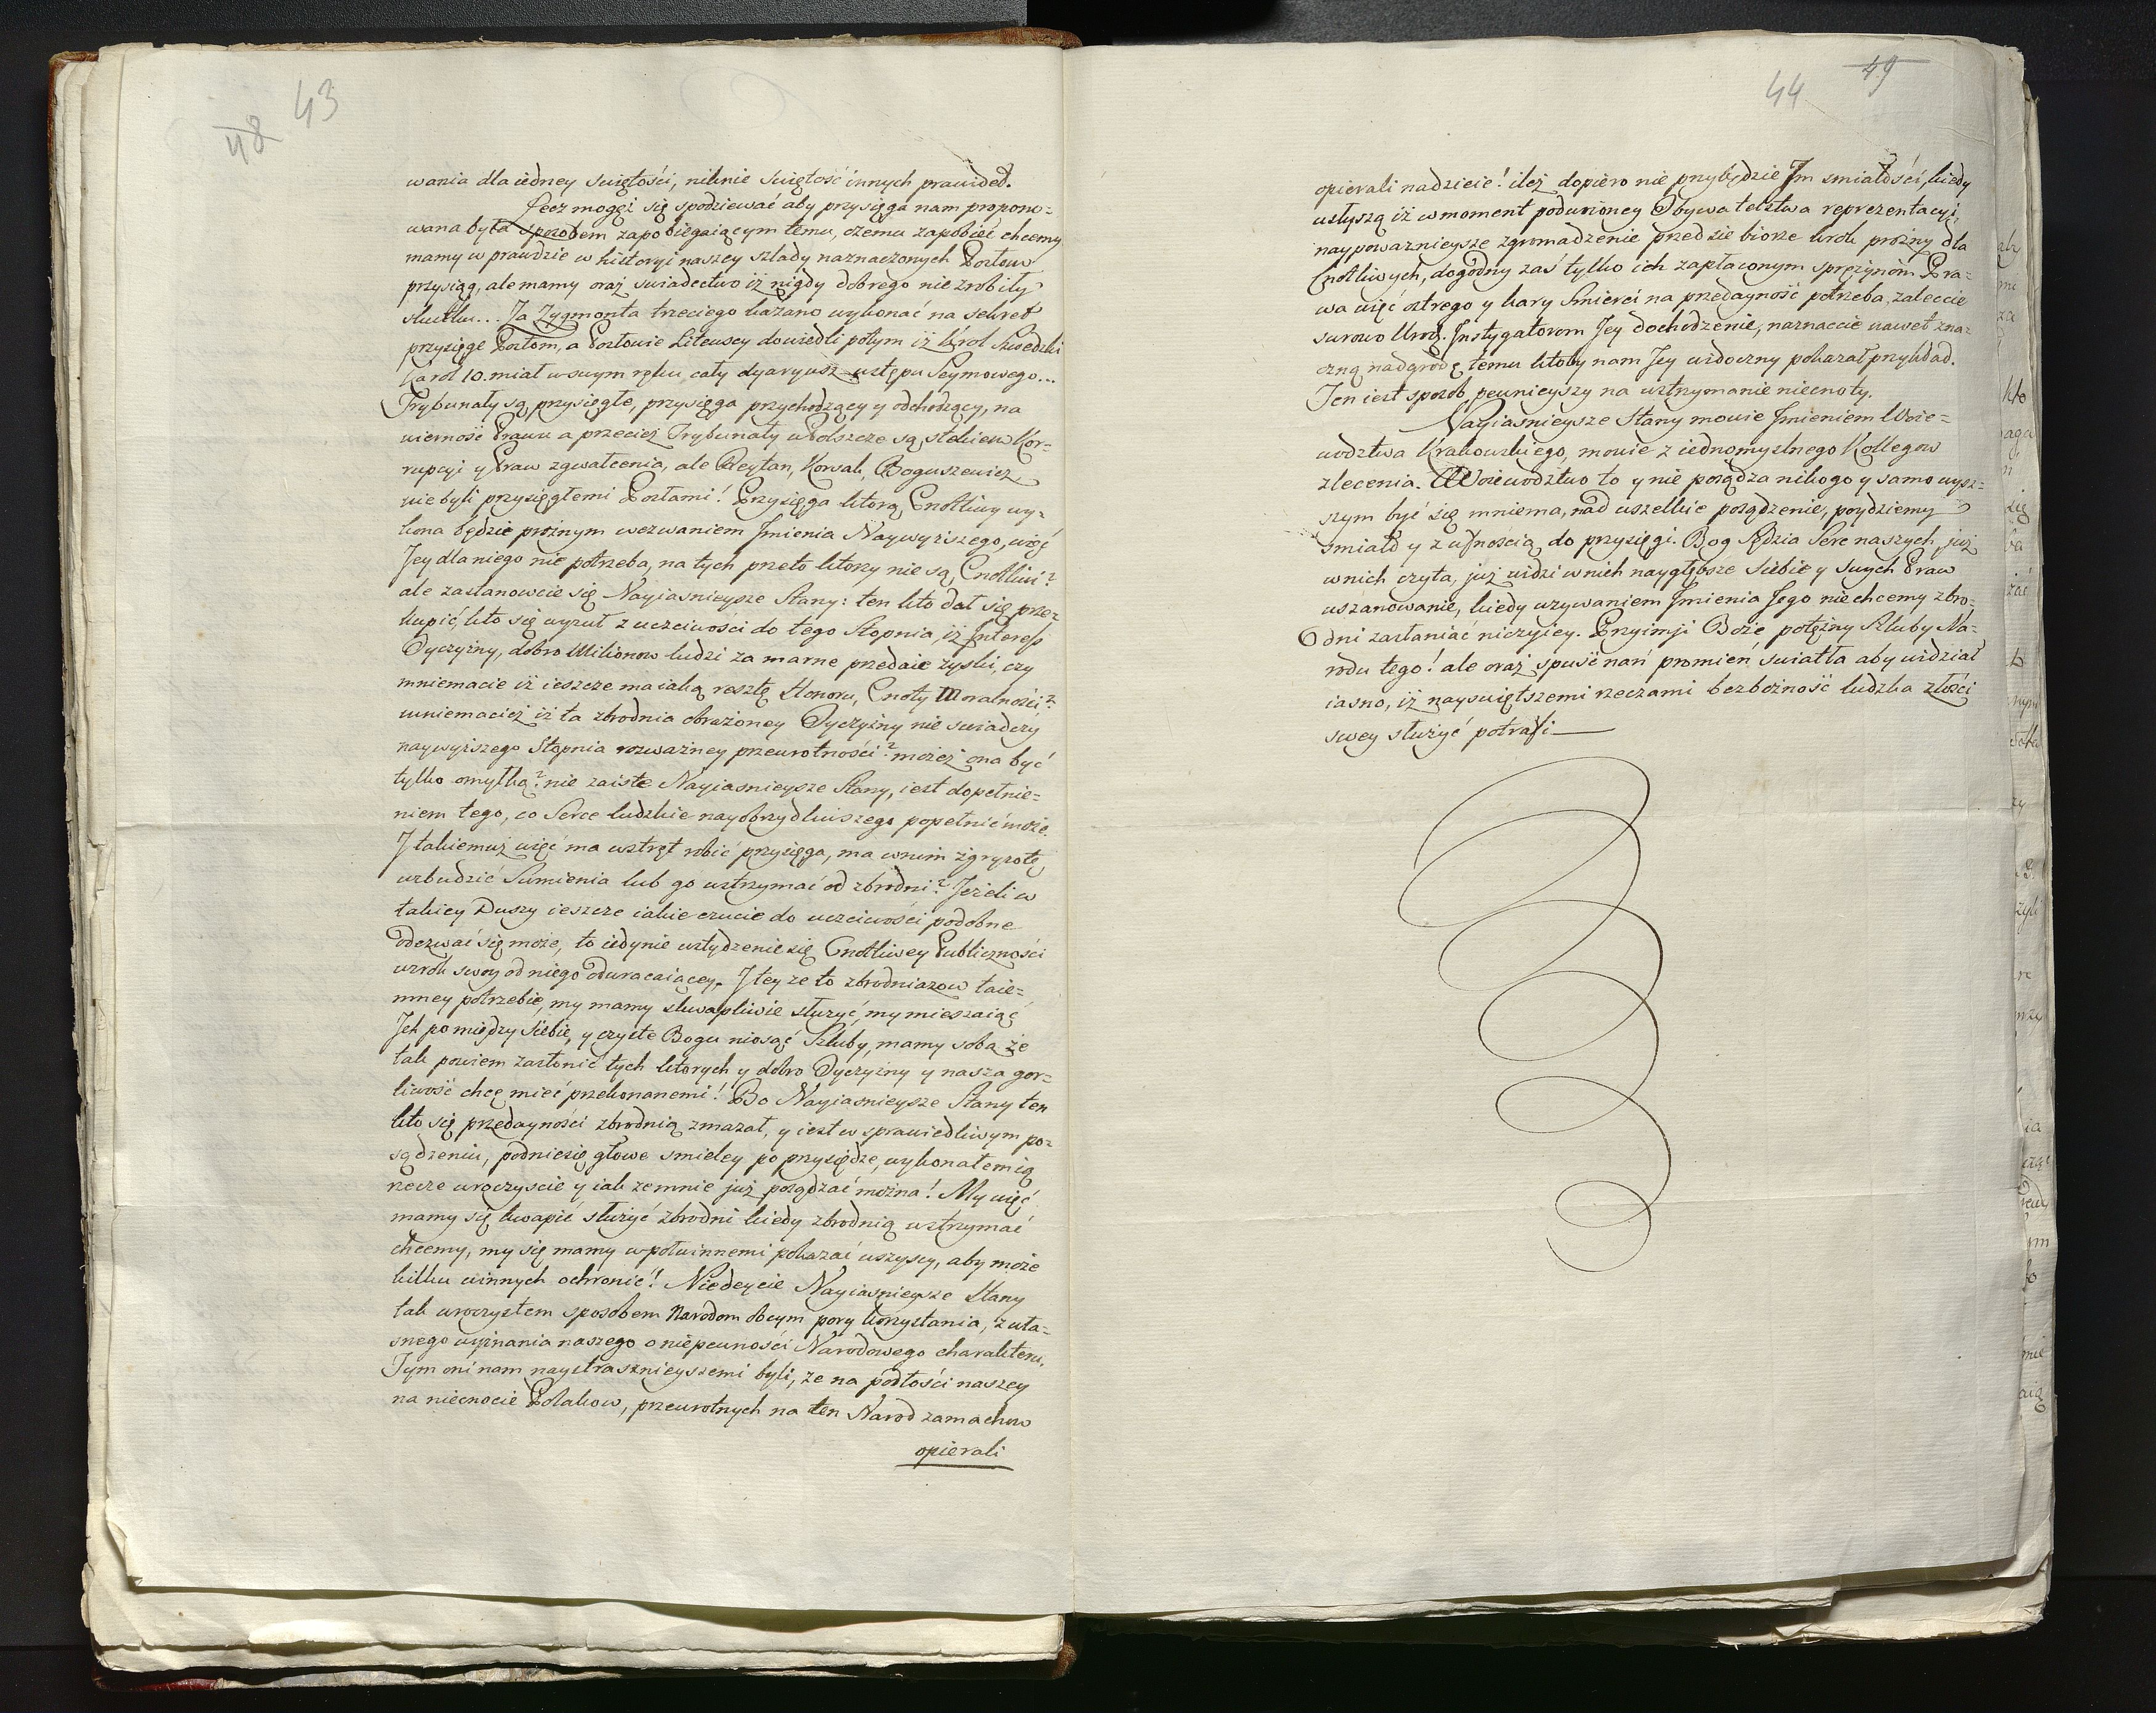 43
48
wania dla iedney swiętości, niknie swiętość innych prawideł.
Lecz mogęż się spodziewać aby przysięga nam propono=
wana była sposobem zapobiegaiącym temu, czemu zapobiec chcemy
mamy w prawdzie w historyi naszey szlady naznaczonych Posłow
przysiąg, ale mamy oraz swiadectwo iż nigdy dobrego nie zrobiły
skutku... Za Zygmonta trzeciego kazano wykonać na sekret
przysięgę Posłom, a Posłowie Litewscy dowiedli potym iż Krol Szwedzki
Karol 10. miał w swym ręku cały dyaryusz ustępu Seymowego...
Trybunały są przysięgłe, przysięga przychodzący y odchodzący, na
wierność Prawu a przecież Trybunały w Polszcze są stekiem Kor=
rupcyi y Praw zgwałcenia, ale Reytan, Korsak, Boguszewicz
nie byli przysięgłemi Posłami! Przysięga ktorą Cnotliwy wy=
kona będzie prożnym wezwaniem Jmienia Naywyższego, więc
Jey dla niego nie potrzeba, na tych przeto ktorzy nie są Cnotliwi?
ale zastanowcie się Nayiasnieysze Stany: ten kto dał się prze=
kupić, kto się wyzuł z uczciwosci do tego Stopnia, iż Jnteress
Oyczyzny, dobro Milionow ludzi za marne przedaie zyski, czy
mniemacie iż ieszcze ma iaką resztę Honoru, Cnoty Moralności?
mniemacież iż ta zbrodnia obrażoney Oyczyzny nie swiadczy
naywyższego Stopnia rozważney przewrotności? możeż ona być
tylko omyłką? nie zaiste Nayiasnieysze Stany, iest dopełnie=
niem tego, co Serce ludzkie nayobrzydliwszego popełnić może.
J takiemuż więc ma wstręt robić przysięga, ma w nim zgryzotę
wzbudzić Sumienia lub go wstrzymać od zbrodni? Jeżeli w
takiey Duszy ieszcze iakie czucie do uczciwości podobne
odezwać się może, to iedynie wstydzenie się Cnotliwey Publiczności
wzrok swoy od niego odwracaiącey. J tey ze to zbrodniazow taie=
mney potrzebie, my mamy skwapliwie służyć, my mieszaiąc
Jch pomiędzy Siebie, y czyste Bogu niosąc Szluby, mamy sobą że
tak powiem zasłonić tych ktorych y dobro Oyczyzny y nasza gor=
liwość chcę mieć przekonanemi! Bo Nayiasnieysze Stany ten
kto się przedayności zbrodnią zmazał, y iest w sprawiedliwym po=
sądzeniu, podniesie głowę smieley po przysiędze, wykonałem ią
rzecze uroczyscie y iak zemnie już posądzać można! My więc
mamy się kwapić służyć zbrodni kiedy zbrodnią wstrzymać
chcemy, my się mamy wpołwinnemi pokazać wszyscy, aby może
kilku winnych ochronić! Niedeycie Nayiasnieysze Stany
tak uroczystem sposobem Narodom obcym pory korzystania, z wła=
snego wyznania naszego o niepewności Narodowego charakteru.
Tym oni nam naystrasznieyszemi byli, że na podłości naszey
na niecnocie Polakow, przewrotnych na ten Narod zamachow
opierali
44
49
opierali nadzieie! ileż dopiero nie przybędzie Jm smiałości, kiedy
usłyszą iż w moment podwoioney Obywatelstwa reprezentacyi,
naypoważnieysze zgromadzenie przedsiebiorze krok prożny dla
Cnotliwych, dogodny zaś tylko ich zapłaconym sprężynom Pra=
wa więc ostrego y kary Smierci na przedayność potrzeba, zaleccie
surowo Urod. Jnstygatorom Jey dochodzenie, naznaccie nawet zna=
czną nadgrodę temu ktoby nam Jey widoczny pokazał przykład.
Ten iest sposob pewnieyszy na wstrzymanie niecnoty.
Nayiasnieysze Stany mowie Jmieniem Woie=
wodztwa Krakowskiego, mowie z iednomyslnego Kollegow
zlecenia. Woiewodztwo to y nie posądza nikogo y samo wysz=
szym być się mniema, nad wszelkie posądzenie, poydziemy
smiało y z ufnością do przysięgi. Bog Sędzia Serc naszych już
w nich czyta, już widzi w nich naygłębsze Siebie y Swych Praw
uszanowanie, kiedy używaniem Jmienia Jego nie chcemy zbro=
dni zasłaniać niczyiey. Przyimji Boże potężny Szluby Na=
rodu tego! ale oraz spuść nań promień swiatła aby widział
iasno, iż nayswiętszemi rzeczami bezbożność ludzka złości
swey służyć potrafi